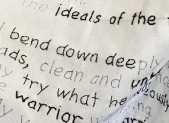 The ideals of the
I bend down deeply
ads, clean and un
try what he
warrior